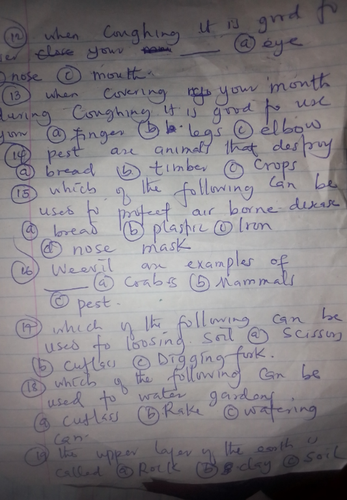 (12) when Coughing It is good to
er your ___ (a) eye
nose (c) mouth.
(13) when Covering your month
during Coughing It is good to use
your (a) finger (b) legs (c) elbow
(14) pest are animals that destroy
(a) bread (b) timber (c) Crops
(15) which of the following Can be
used to protect air borne disease
(a) bread (b) plastic (c) Iron
(d) nose mask
(16) Weevil are examples of
___ (a) Crabs (b) Mammals
(c) pest.
(17) which of the following can be
used to loosing Soil (a) Scissors
(b) Cutlass (c) Digging fork.
(18) which of the following Can be
used to water garden
(a) cutlass (b) Rake (c) watering
Can.
(19) the upper layer of the earth is
called (a) Rock (b) clay (c) Soil